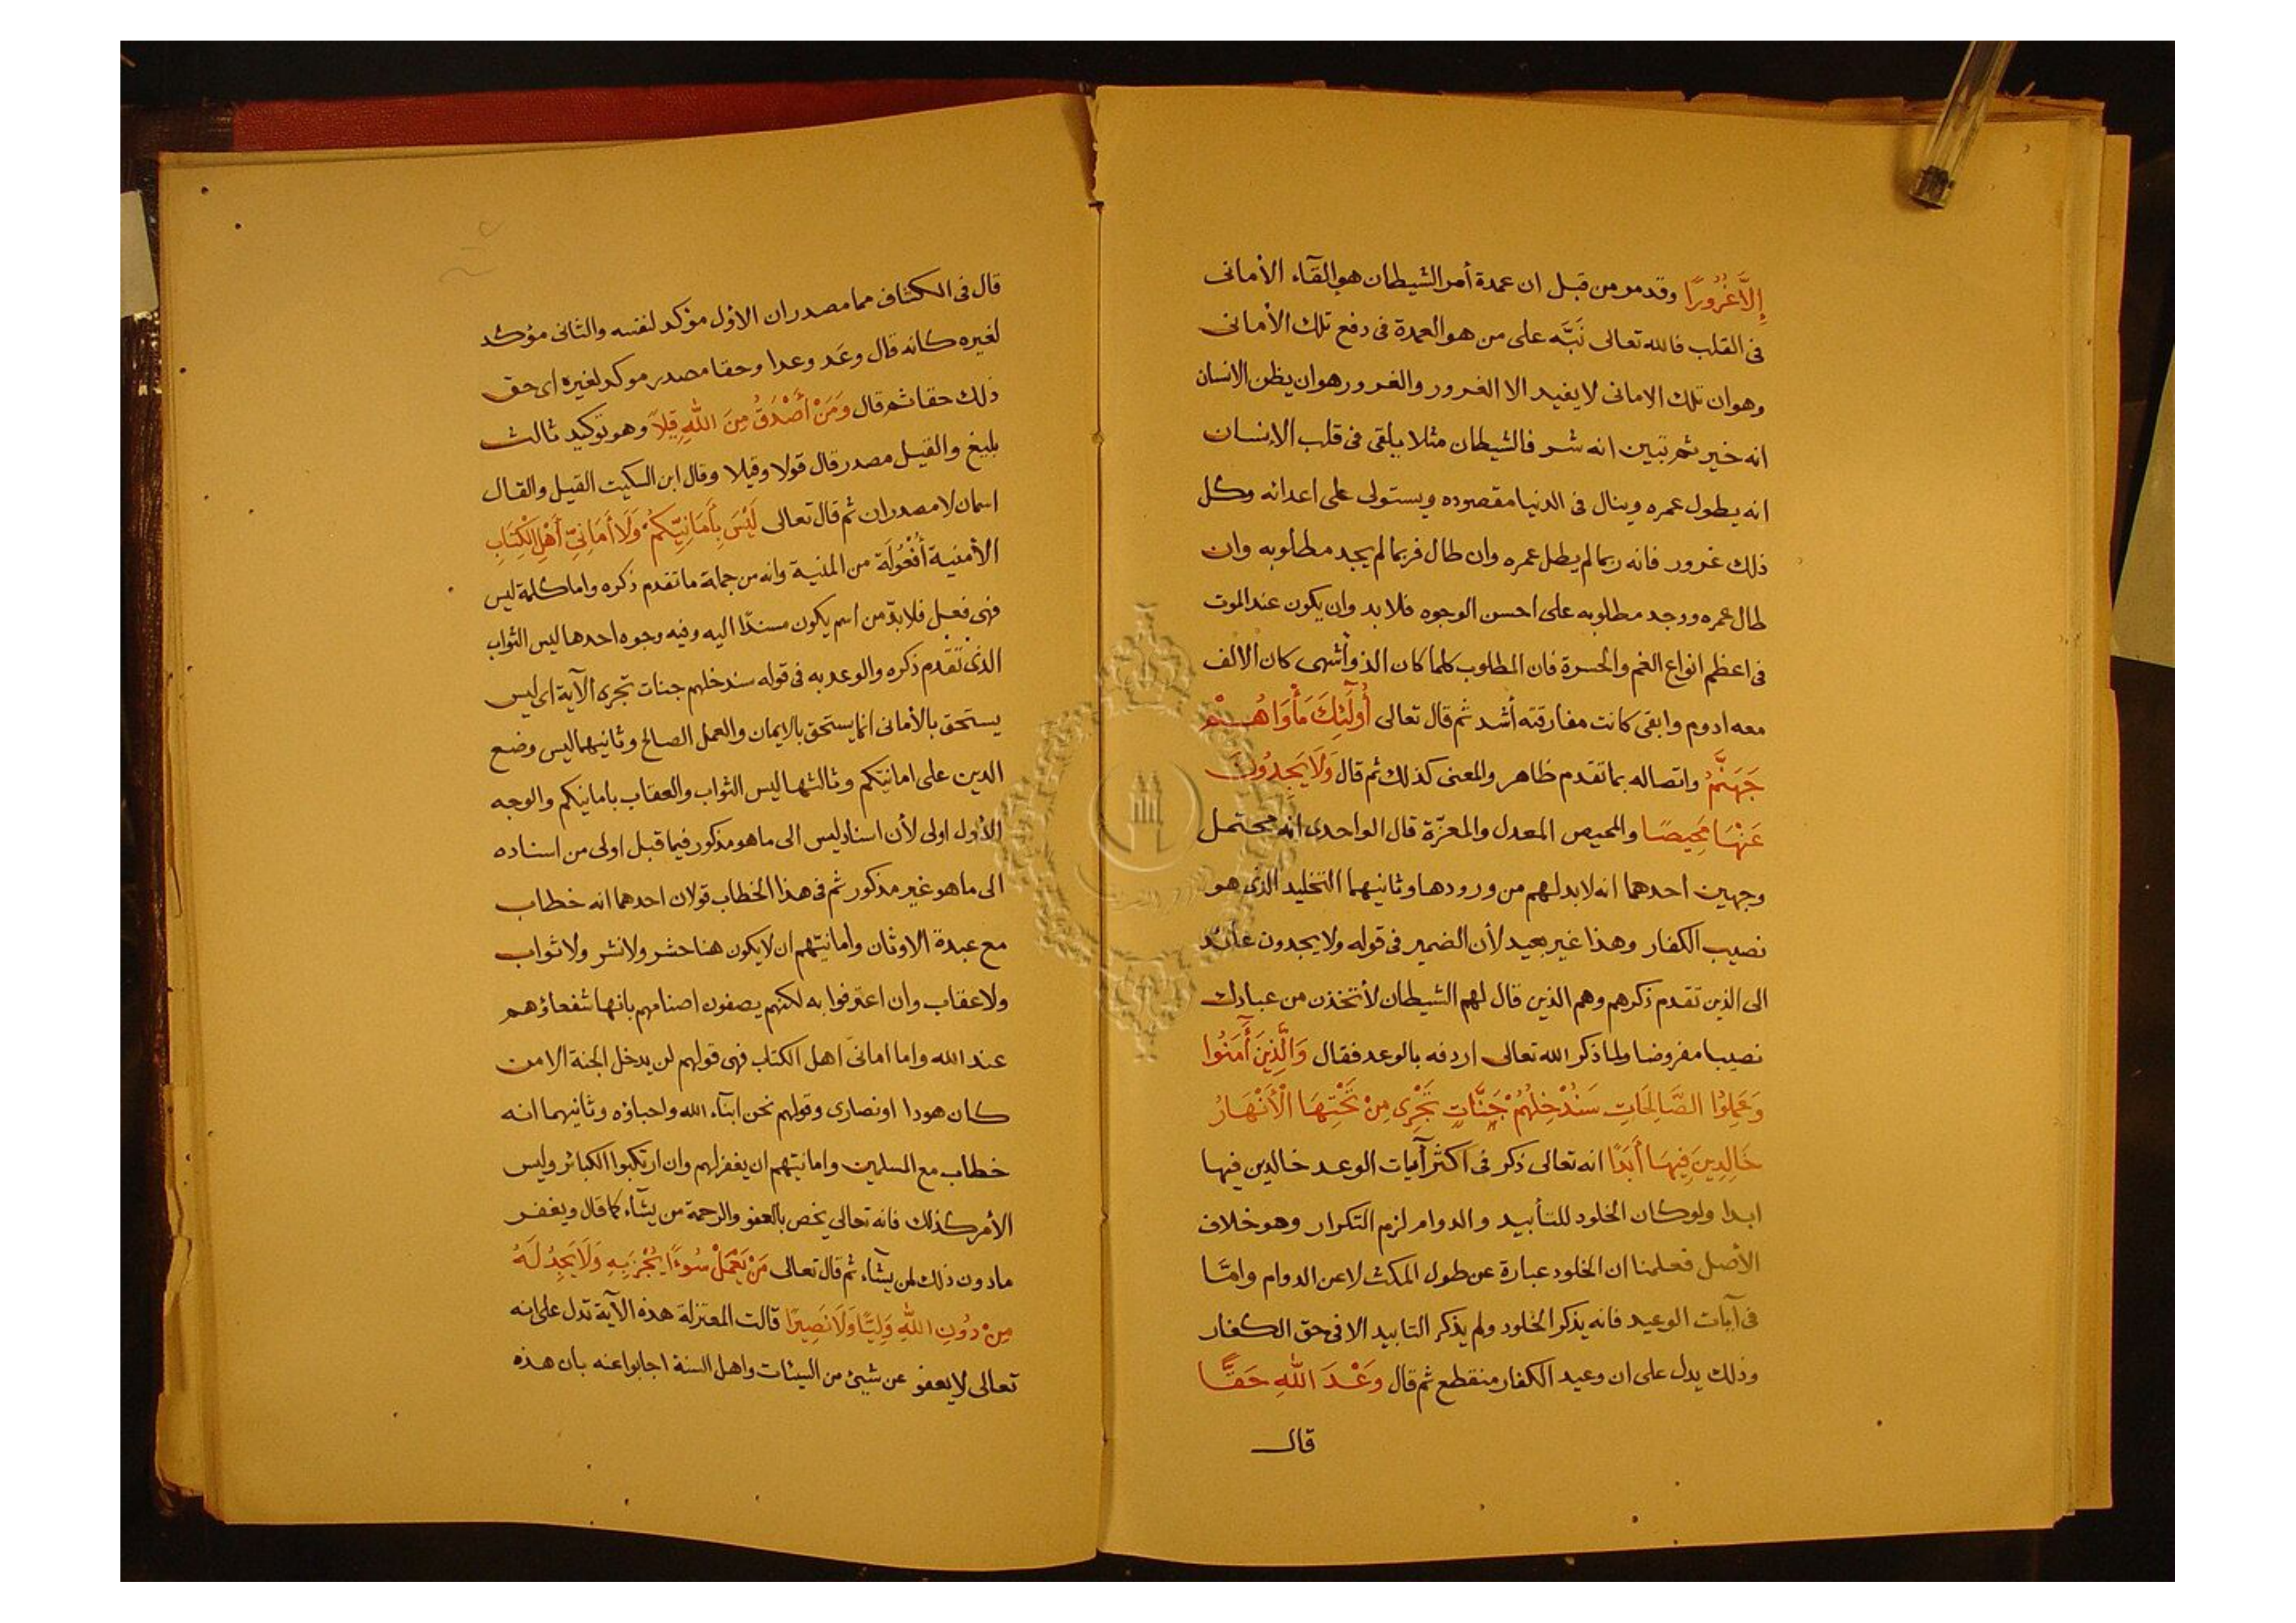 إِلَّا غُرُورًا وقد مر من قبل ان عمدة أمر الشيطان هو القآء الأمانى
فى القلب فالله تعالى نَبَّه على من هو العمدة فى دفع تلك الأمانى
وهو ان تلك الامانى لا يفيد الا الغرور والغرور هو ان يظن الانسان
انه خير ثم تبين انه شر فالشيطان مثلا يلقى فى قلب الانسان
انه يطول عمره وينال فى الدنيا مقصوده ويستولى على اعدائه وكل
ذلك غرور فانه ربما لم يطل عمره وان طال فربما لم يجد مطلوبه وان
طال عمره ووجد مطلوبه على احسن الوجوه فلا بد وان يكون عند الموت
فى اعظم انواع الغم والحسرة فان المطلوب كلما كان الذ وأشهى كان الالف
معه ادوم وابقى كانت مفارقته أشد ثم قال تعالى أُولَٓئِكَ مَأْوَاهُمْ
جَهَنَّمُ واتصاله بما تقدم ظاهر والمعنى كذلك ثم قال وَلَا يَجِدُونَ
عَنْهَا مَحِيصًا والمحيص المعدل والمعزّة قال الواحدى انه محتمل
وجهين احدهما انه لا بد لهم من ورودها وثانيهما التخليد الذى هو
نصيب الكفار وهذا غير بعيد لأن الضمير فى قوله ولا يجدون عائد
الى الذين تقدم ذكرهم وهم الذين قال لهم الشيطان لأتخذن من عبادك
نصيبا مفروضا ولما ذكر الله تعالى اردفه بالوعد فقال وَالَّذِينَ أَمَنُوا
وَعَمِلُوا الصَّالِحَاتِ سَنُدْخِلُهُمْ جَنَّاتٍ تَجْرِى مِنْ تَحْتِهَا الْأَنْهَارُ
خَالِدِينَ فِيهَا أَبَدًا انه تعالى ذكر فى اكثر آيات الوعد خالدين فيها
ابدا ولو كان الخلود للتأبيد والدوام لزم التكرار وهو خلاف
الأصل فعلمنا ان الخلود عبارة عن طول المكث لا عن الدوام وامّا
فى آيات الوعيد فانه يذكر الخلود ولم يذكر التابيد الا فى حق الكفار
وذلك يدل على ان وعيد الكفار منقطع ثم قال وَعْدَ اللهِ حَقًّا
قال
قال فى الكشاف مما مصدران الاوّل مؤكد لنفسه والثانى مؤكد
لغيره كانه قال وعَد وعدا وحقا مصدر موكد لغيره اى حق
ذلك حقا ثم قال وَمَنْ أَصْدَقُ مِنَ اللهِ قِيلاً وهو توكيد ثالث
بليغ والقيل مصدر قال قولا وقيلا وقال ابن السكيت القيل والقال
اسمان لا مصدران ثم قال تعالى لَيْسَ بِأَمَانِيِّكُمْ وَلَا أَمَانِيِّ أَهْلِ الْكِتَابِ
الأمنية أُفْعُولَة من المنية وانه من جملة ما تقدم ذكره واما كلمة ليس
فهى فعل فلا بدّ من اسم يكون مسندًا اليه وفيه وجوه احدها ليس الثواب
الذى تقدم ذكره والوعد به فى قوله سندخلهم جنات تجرى الآية اى ليس
يستحق بالأمانى انما يستحق بالايمان والعمل الصالح وثانيهما ليس وضع
الدين على امانيّكم وثالثها ليس الثواب والعقاب بامانيكم والوجه
الأول اولى لأن اسناد ليس الى ما هو مذكور فيما قبل اولى من اسناده
الى ما هو غير مذكور ثم فى هذا الخطاب قولان احدهما انه خطاب
مع عبدة الاوثان وأمانيّهم ان لا يكون هنا حشر ولا نشر ولا ثواب
ولا عقاب وان اعترفوا به لكنهم يصفون اصنامهم بانها شفعاؤهم
عند الله واما امانىّ اهل الكتاب فهى قولهم لن يدخل الجنة الا من
كان هودا او نصارى وقولهم نحن ابنآء الله واحباؤه وثانيهما انه
خطاب مع المسلمين وامانيّهم ان يغفر لهم وان ارتكبوا الكبائر وليس
الأمر كذلك فانه تعالى يخص بالعفو والرحمة من يشآء كما قال ويغفر
مادون ذلك لمن يشآء ثم قال تعالى مَنْ يَعْمَلْ سُوءًا يُجْزَ بِهِ وَلَا يَجِدْ لَهُ
مِنْ دُونِ اللهِ وَلِيًّا وَلَا نَصِيرًا قالت المعتزلة هذه الآية تدل على انه
تعالى لا يعفو عن شيئ من السيئات واهل السنة اجابوا عنه بان هذه